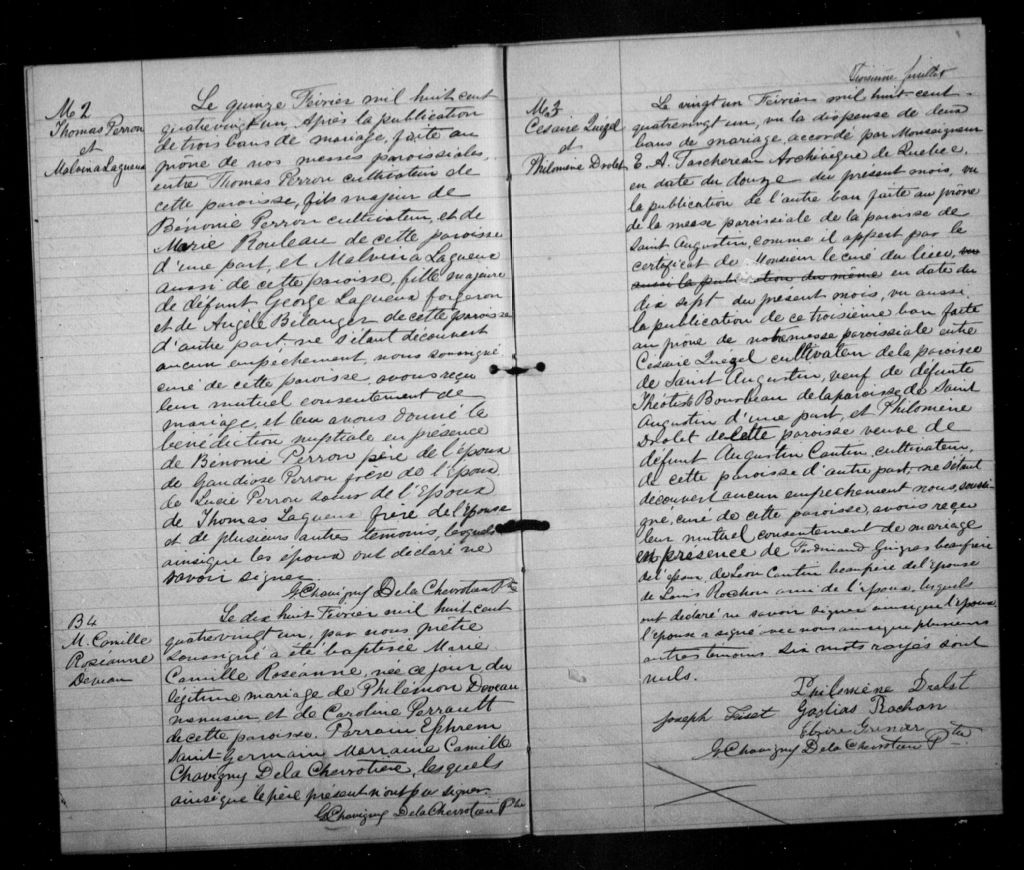 M 2
Thomas Perron
et
Malvina Lagueux
Le quinze Février mil huit cent
quatrevingt un, Après la publication
de trois bans de mariage, faite au
prône de nos messes paroissiales,
entre Thomas Perron cultivateur de
cette paroisse, fils majeur de
Bénonie Perron cultivateur, et de
Marie Rouleau de cette paroisse
d'une part, et Malvina Lagueux
aussi de cette paroisse, fille majeure
de défunt George Lagueux forgeron
et de Angèle Bélanger de cette paroisse
d'autre part, ne s'étant découvert
aucun empêchement, nous soussigné
curé de cette paroisse, avons reçu
leur mutuel consentement de
mariage, et leur avons donné la
bénédiction nuptiale en présence
de Bénonie Perron père de l'époux
de Gaudiose Perron frère de l'Epoux
de Lucie Perron soeur de l'Epoux
de Thomas Lagueux frère de l'épouse
et de plusieurs autres temoins, lesquels
ainsique les époux ont déclaré ne
savoir signer
G Chavigny De la Chevrotière Ptre
B 4
M. Camille
Roséanne
Deveau
Le dix huit Février mil huit cent
quatrevingt un, par nous prêtre
soussigné a été baptisée Marie
Camille Roséanne, née ce jour du
légitime mariage de Philémon Deveau
menusier, et de Caroline Perrault
de cette paroisse. Parrain Ephrem
Saint-Germain Marraine Camille
Chavigny De la Chevrotière, lesquels
ainsique le père présent n'ont pu signer
G Chavigny De la Chevrotière Ptre
Troisième feuillet
M 3
Césaire Quezel
et
Philomène Drolet
Le vingt un Février mil huit-cent-
quatrevingt un, vu la dispense de deux
bans de mariage, accordé par Monseigneur
E. A. Taschereau Archévêque de Quebec,
en date du douze du présent mois, vu
la publication de l'autre ban faite au prône
de la messe paroissiale de la paroisse de
Saint Augustin, comme il appert par le
certificat de Monsieur le curé du lieu, vu
aussi la publication du même en date du
dix sept du présent mois, vu aussi
la publication de ce troisième ban faite
au prone de notre messe paroissiale entre
Césaire Quezel cultivateur de la paroisse
de Saint Augustin, veuf de défunte
Théotiste Bourbeau de la paroisse de Saint
Augustin d'une part, et Philomène
Drolet de cette paroisse veuve de
défunt Augustin Cantin, cultivateur,
de cette paroisse d'autre part, ne s'étant
découvert aucun empêchement nous, soussi-
gné, curé de cette paroisse, avons reçu
leur mutuel consentement de mariage
en présence de Ferdinand Gingras beaufrère
de l'époux, de Léon Cantin beaupère de l'épouse
de Louis Rochon ami de l'époux, lesquels
ont déclaré ne savoir signer ainsique l'époux
l'épouse a signé avec nous ainsique plusieurs
autres temoins Six mots rayés sont
nuls.
Philomène Drolet
Joseph
Rochon
G Chavigny De la Chevrotière Ptre